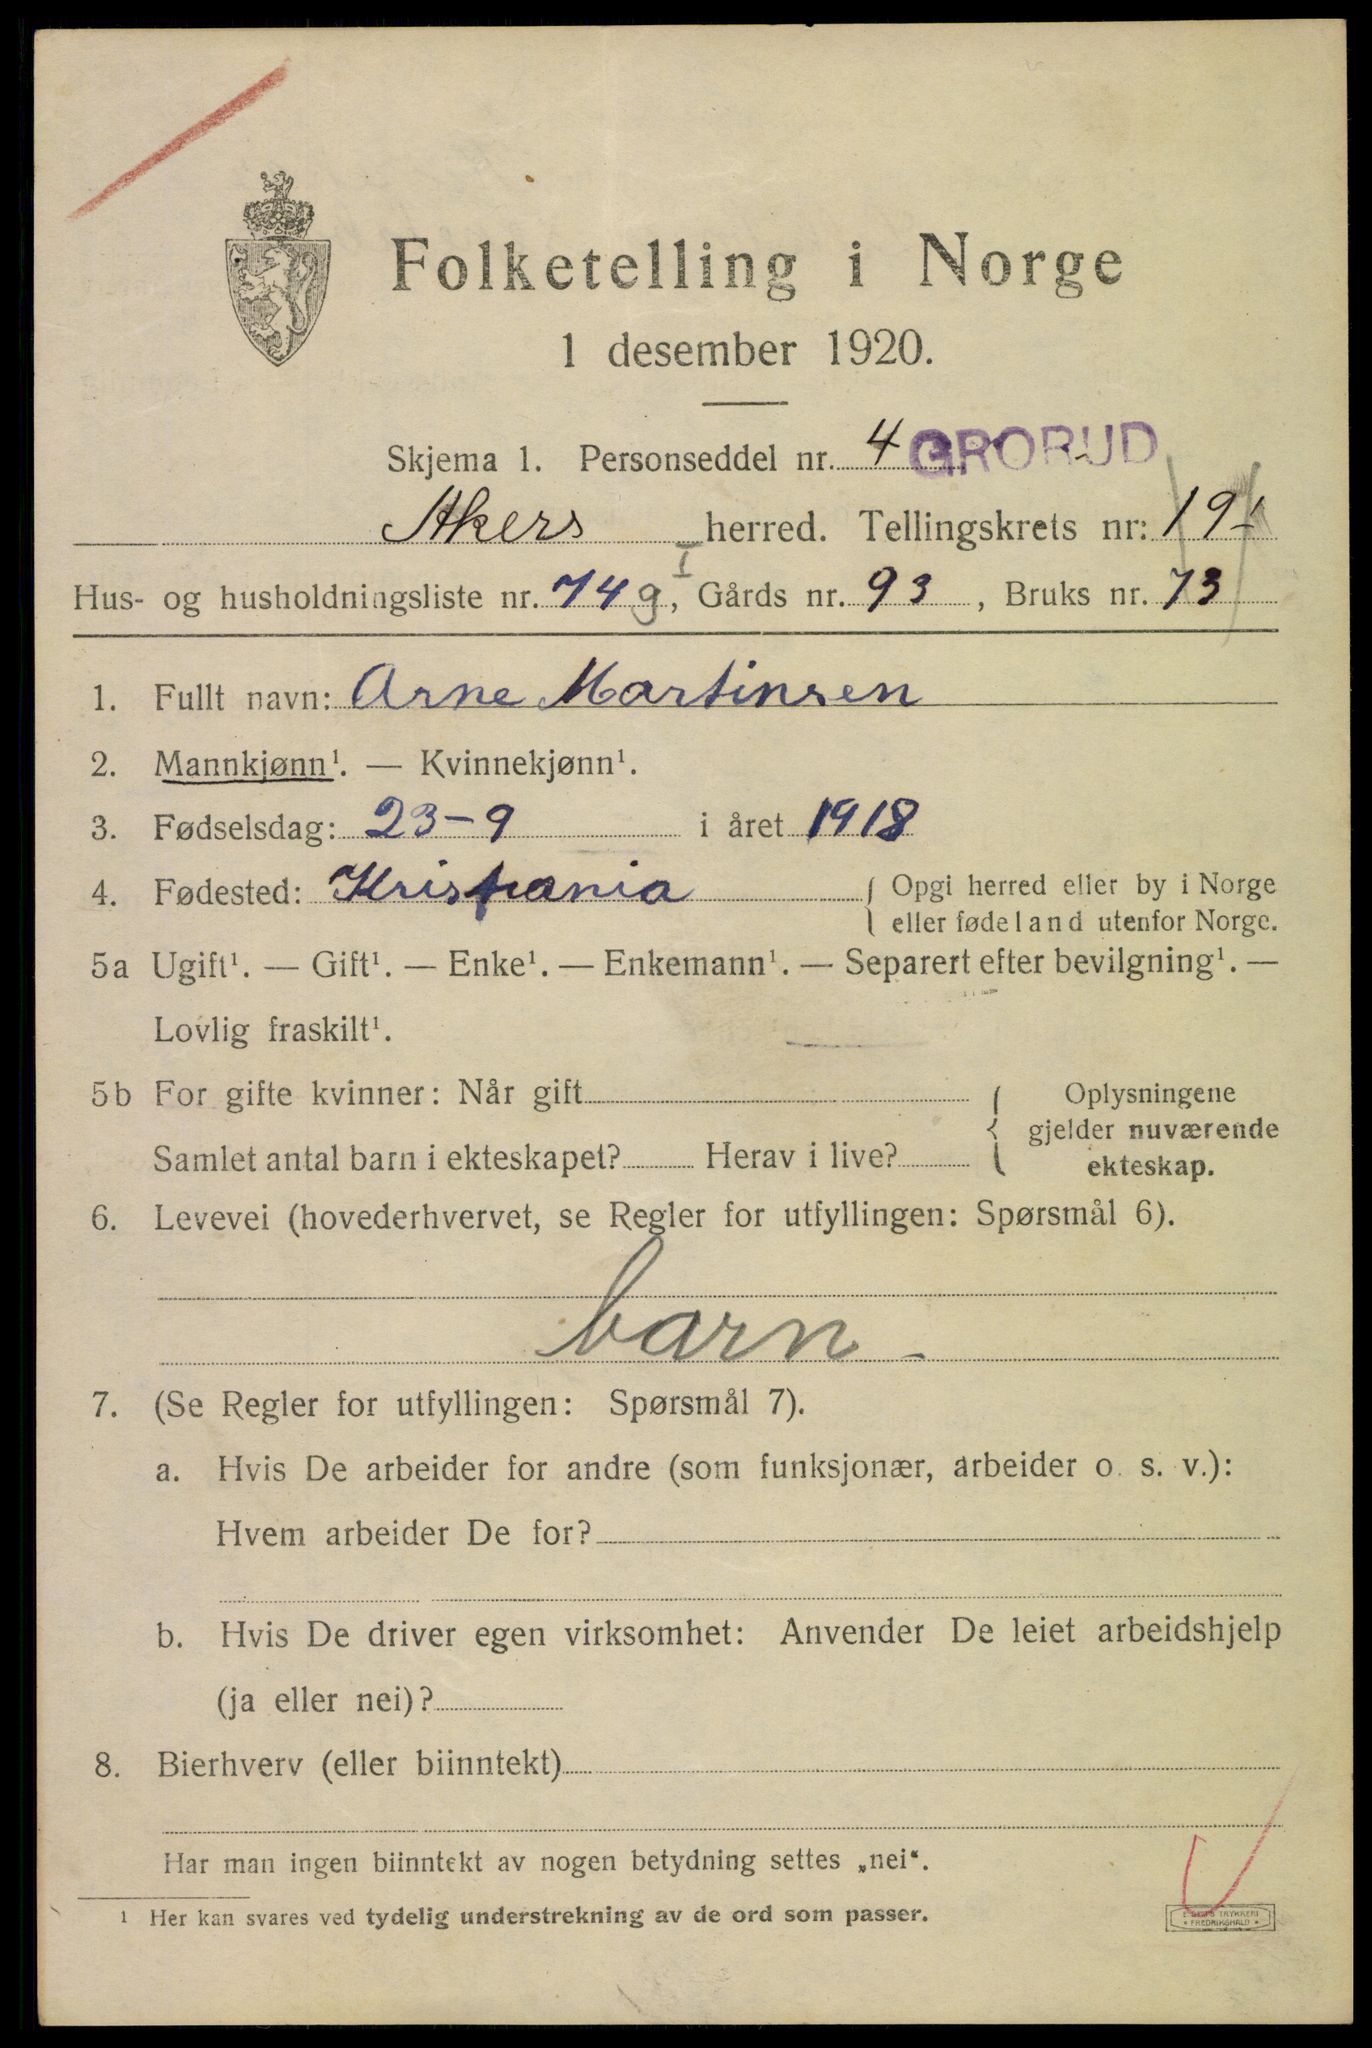 Folketelling i Norge
1 desember 1920.
Skjema 1. Personseddel nr. 4 GRORUD
Akers herred. Tellingskrets nr: 19
I
Hus- og husholdningsliste nr. 74 g, Gårds nr. 93, Bruks nr. 73
1. Fullt navn: Arne Martinsen
2. Mannkjønn¹. — Kvinnekjønn¹.
3. Fødselsdag: 23-9 i året 1918
4. Fødested: Kristiania { Opgi herred eller by i Norge
eller fødeland utenfor Norge.
5a Ugift¹. — Gift¹. — Enke¹. — Enkemann¹. — Separert efter bevilgning¹. —
Lovlig fraskilt¹.
5b For gifte kvinner: Når gift { Oplysningene
gjelder nuværende
Samlet antal barn i ekteskapet? Herav i live? ekteskap.
6. Levevei (hovederhvervet, se Regler for utfyllingen: Spørsmål 6).
barn -
7. (Se Regler for utfyllingen: Spørsmål 7).
a. Hvis De arbeider for andre (som funksjonær, arbeider o. s. v.):
Hvem arbeider De for?
b. Hvis De driver egen virksomhet: Anvender De leiet arbeidshjelp
(ja eller nei)?
8. Bierhverv (eller biinntekt)
Har man ingen biinntekt av nogen betydning settes „nei“.
¹ Her kan svares ved tydelig understrekning av de ord som passer.
TRYKKERI
FREDRIKSHALD